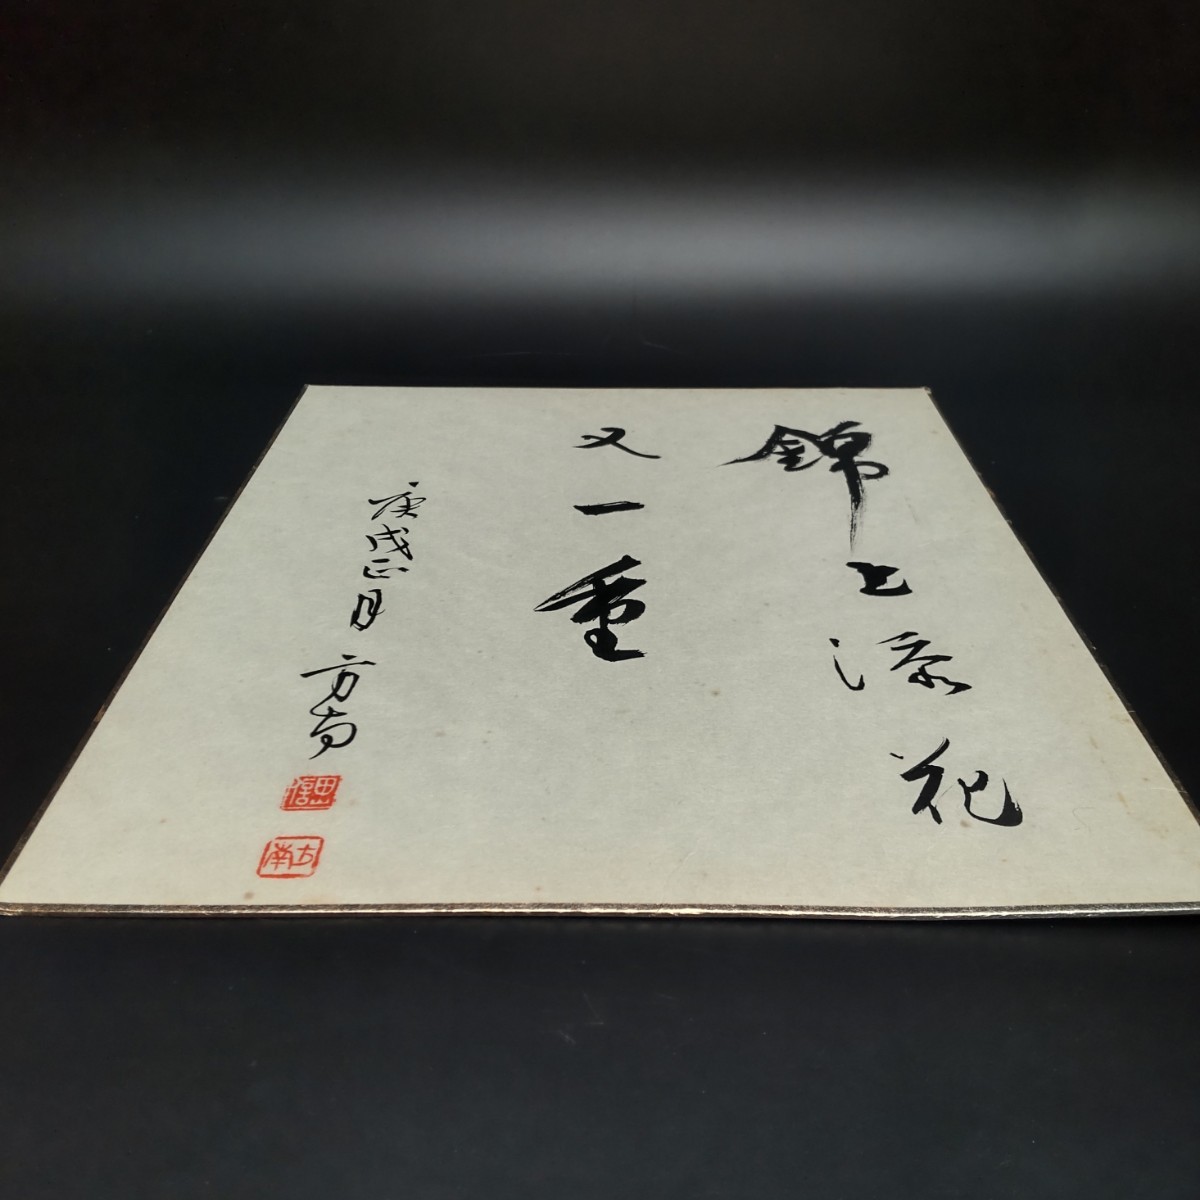 錦上添花
又一重
庚戌正月 方南
田山信
方南